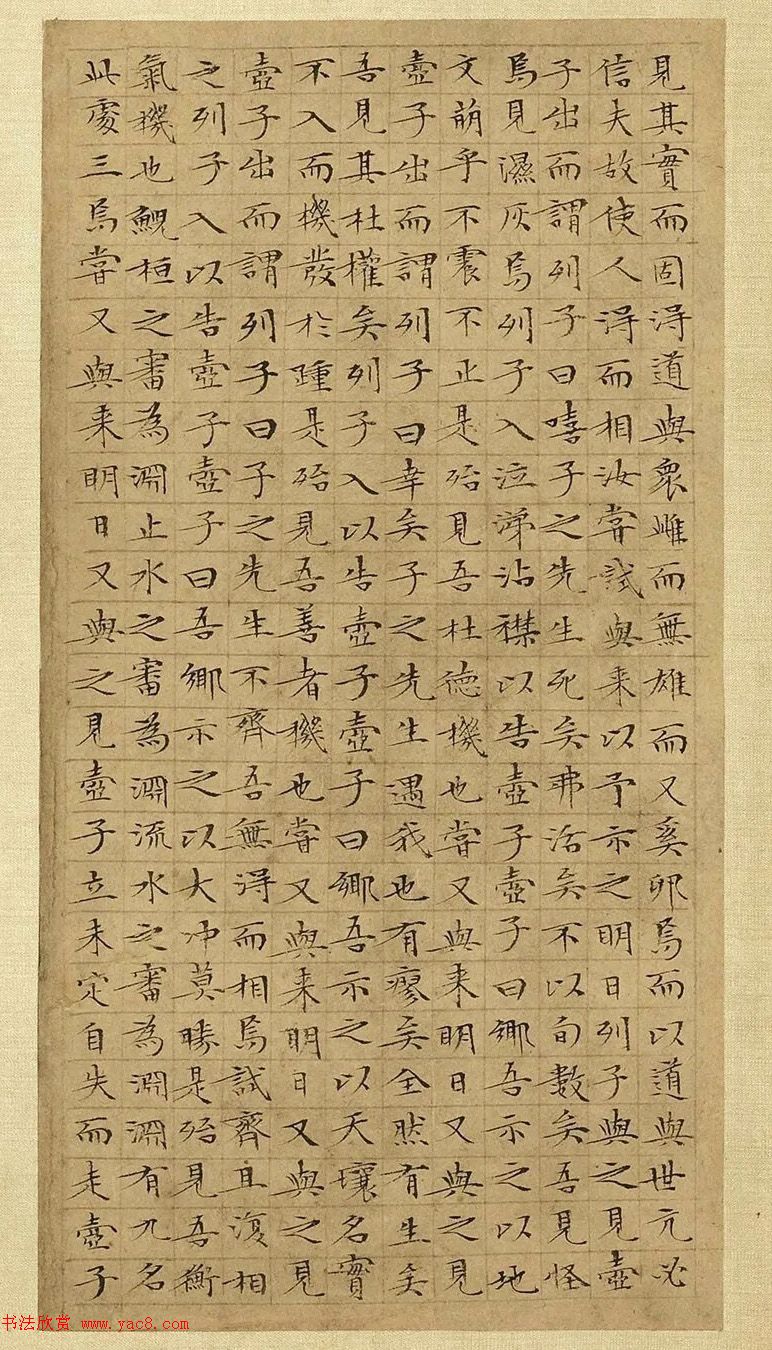 見其實而固淂道與衆雌而無雄而又奚卵焉而以道與世亢必
信夫故使人淂而相汝嘗試與来以予示之明日列子與之見壺
子出而謂列子曰嘻子之先生死矣弗活矣不以旬數矣吾見怪
焉見濕灰焉列子入泣涕沾襟以告壺子壺子曰鄉吾示之以地
文萌乎不震不止是殆見吾杜德機也嘗又與来明日又與之見
壺子出而謂列子曰幸矣子之先生遇我也有瘳矣全然有生矣
吾見其杜權矣列子入以告壺子壺子曰鄉吾示之以天壤名實
不入而機發於踵是殆見吾善者機也嘗又與来明日又與之見
壺子出而謂列子曰子之先生不齊吾無淂而相焉試齊且復相
之列子入以告壺子壺子曰吾鄉示之以大冲莫勝是殆見吾衡
氣機也鯢桓之審為淵止水之審為淵流水之審為淵淵有九名
此處三焉嘗又與来明日又與之見壺子立未定自失而走壺子
书法欣赏 www.yac8.com